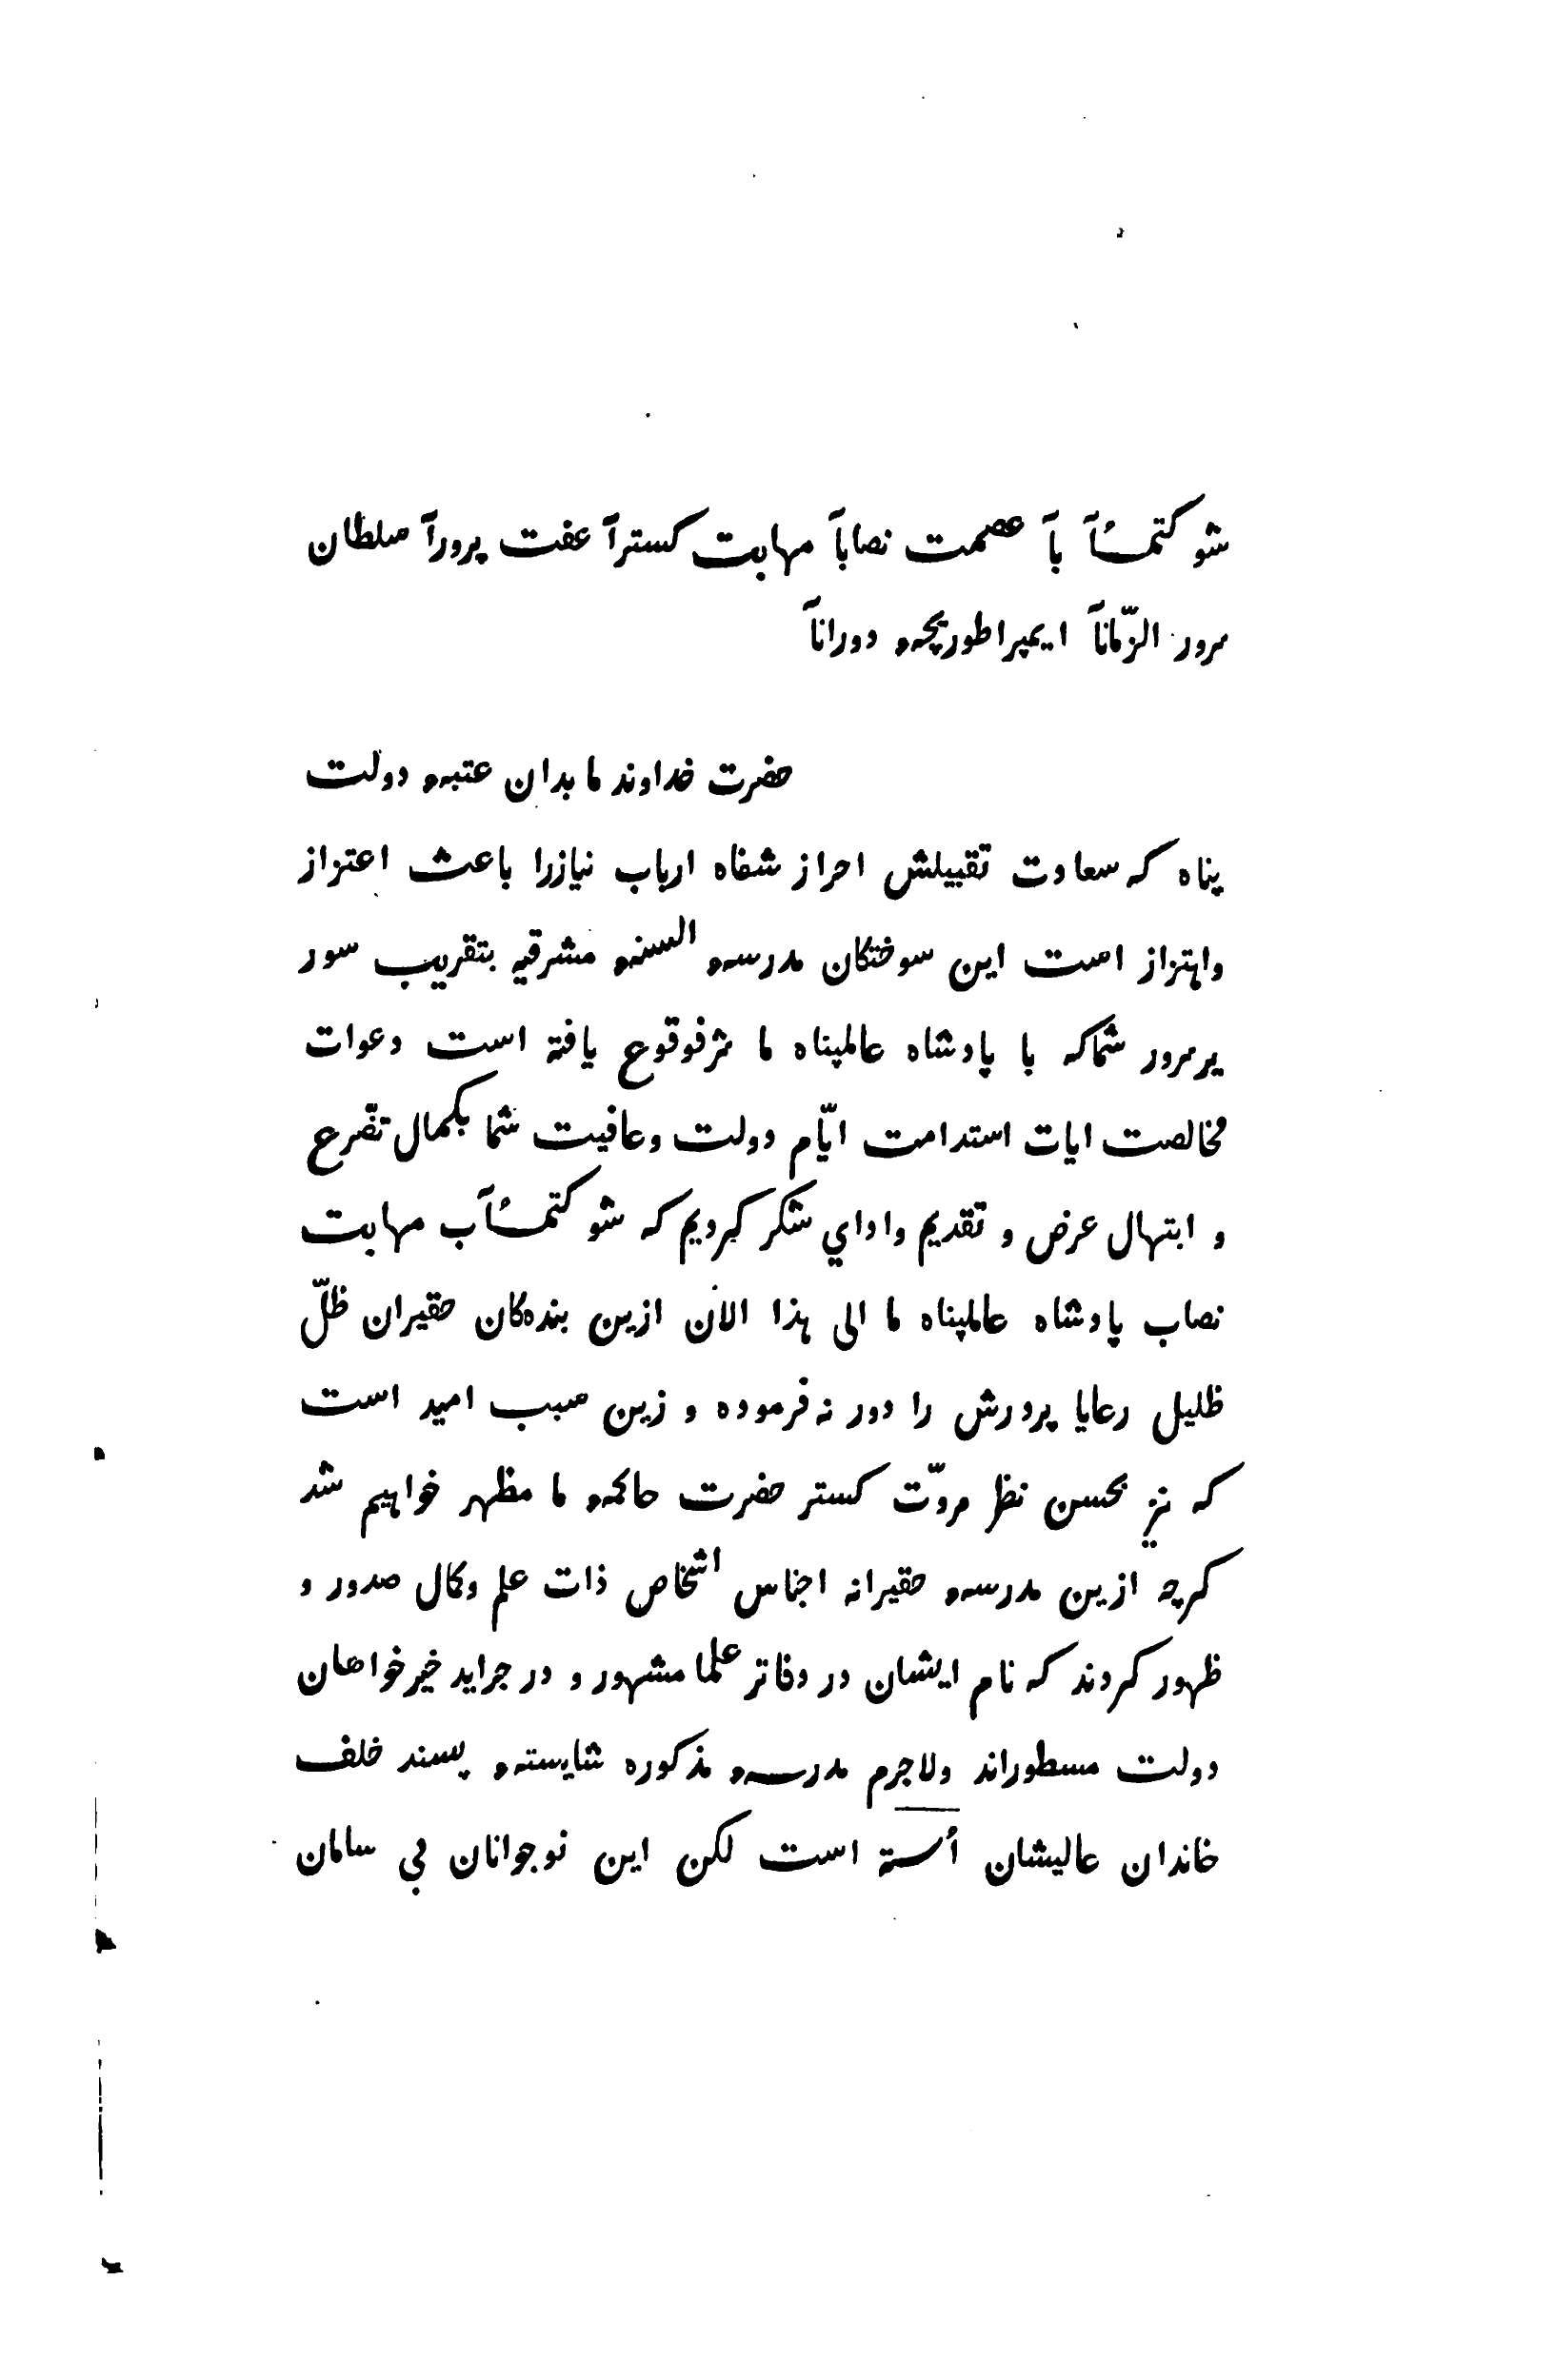 شوكتمـئآ بآ عصمت نصاباً مهابت كستراً عفت پروراً سلطان
سرور الزّماناً ايمپراطوريچهٔ دوراناً
حضرت خداوند ما بدان عتبهٔ دولت
پناه كه سعادت تقبيلش احراز شفاه ارباب نيازرا باعث اعتزاز
واهتزاز است اين سوختكان مدرسهٔ السنهٔ مشرقيه بتقريب سور
پرسرور شماكه با پادشاه عالمپناه ما شرفوقوع يافته است دعوات
مخالصت ايات استدامت ايّام دولت وعافيت شما بكمال تضّرع
و ابتهال عرض و تقديم واداي شكر كرديم كه شوكتمـئآب مهابت
نصاب پادشاه عالمپناه ما الى هذا الان ازين بندهكان حقيران ظلّ
ظليل رعايا پرورش را دور نه فرموده و زين سبب اميد است
كه نيز بحسن نظر مروّت كستر حضرت حاكمهٔ ما مظهر خواهيم شد
كرچه ازين مدرسهٔ حقيرانه اجناس اشخاص ذات علم وكمال صدور و
ظهور كردند كه نام ايشان در دفاتر علما مشهور و در جرايد خيرخواهان
دولت مسطوراند ولاجرم مدرسهٔ مذكوره شايستهٔ پسند خلف
خاندان عاليشان أستة است لكن اين نوجوانان بى سامان